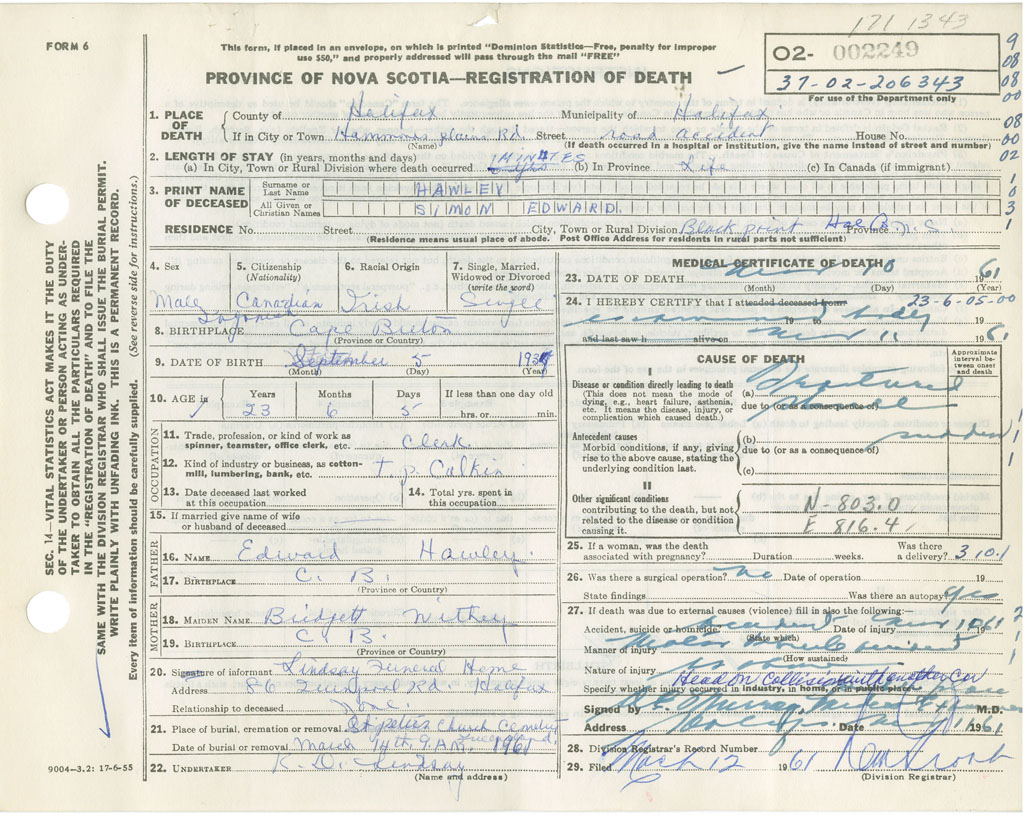 171 1343
FORM 6
This form, if placed in an envelope, on which is printed "Dominion Statistics—Free, penalty for improper
use $50," and properly addressed will pass through the mail "FREE"
PROVINCE OF NOVA SCOTIA—REGISTRATION OF DEATH
O2- 002249
37-02-206343
For use of the Department only
9
08
08
00
08
00
02
1
0
3
1
1. PLACE OF DEATH
County of Halifax Municipality of Halifax
If in City or Town Hammonds plains Rd. Street road accident House No.
(Name) (If death occurred in a hospital or institution, give the name instead of street and number)
2. LENGTH OF STAY (in years, months and days)
(a) In City, Town or Rural Division where death occurred MINUTES (b) In Province Life (c) In Canada (if immigrant)
3. PRINT NAME OF DECEASED
Surname or Last Name HAWLEY
All Given or Christian Names SIMON EDWARD
RESIDENCE No. Street City, Town or Rural Division Black point Hfx Co. Province N.S.
(Residence means usual place of abode. Post Office Address for residents in rural parts not sufficient)
4. Sex
Male
5. Citizenship
(Nationality)
Canadian
6. Racial Origin
Irish
7. Single, Married, Widowed or Divorced
(write the word)
Single
Ingonish
8. BIRTHPLACE Cape Breton
(Province or Country)
9. DATE OF BIRTH September 5 1937
(Month) (Day) (Year)
10. AGE in Years Months Days If less than one day old
23 6 5 hrs. or min.
OCCUPATION
11. Trade, profession, or kind of work as
spinner, teamster, office clerk, etc. Clerk
12. Kind of industry or business, as cotton-
mill, lumbering, bank, etc. T. P. Calkin
13. Date deceased last worked
at this occupation
14. Total yrs. spent in
this occupation
15. If married give name of wife
or husband of deceased
FATHER
16. NAME Edward Hawley
17. BIRTHPLACE C. B.
(Province or Country)
MOTHER
18. MAIDEN NAME Bridgett Withey
19. BIRTHPLACE C. B.
(Province or Country)
20. Signature of informant Lindsay Funeral Home
Address 86 Quinpool Rd. Halifax
Relationship to deceased None.
21. Place of burial, cremation or removal St. peters Church Cemetery
Date of burial or removal March 14th. 9 A.M. 1961
22. UNDERTAKER K. D. Lindsay
(Name and address)
MEDICAL CERTIFICATE OF DEATH
23. DATE OF DEATH Mar 10 1961
(Month) (Day) (Year)
24. I HEREBY CERTIFY that I attended deceased from 23-6-05-00
examined 19 to body 19
and last saw h alive on Mar 11 1961
CAUSE OF DEATH
Approximate interval between onset and death
I
Disease or condition directly leading to death
(This does not mean the mode of
dying, e.g., heart failure, asthenia,
etc. It means the disease, injury, or
complication which caused death.)
(a) Fractured
due to (or as a consequence of) skull
Antecedent causes
Morbid conditions, if any, giving
rise to the above cause, stating the
underlying condition last.
(b) sudden
due to (or as a consequence of)
(c)
II
Other significant conditions
contributing to the death, but not
related to the disease or condition
causing it.
N-803.0
E 816.4
25. If a woman, was the death
associated with pregnancy? Duration weeks. Was there
a delivery? 310.1
26. Was there a surgical operation? no Date of operation 19
State findings Was there an autopsy? yes
27. If death was due to external causes (violence) fill in also the following:—
Accident, suicide or homicide? accident Date of injury Mar 10 1961
(State which)
Manner of injury Motor vehicle accident
(How sustained)
Nature of injury as above
Head on Collision with another Car
Specify whether injury occurred in industry, in home, or in public place
Signed by M.D.
Address Date 1961
28. Division Registrar's Record Number
29. Filed March 12 1961
(Division Registrar)
SEC. 14—VITAL STATISTICS ACT MAKES IT THE DUTY
OF THE UNDERTAKER OR PERSON ACTING AS UNDER-
TAKER TO OBTAIN ALL THE PARTICULARS REQUIRED
IN THE "REGISTRATION OF DEATH" AND TO FILE THE
SAME WITH THE DIVISION REGISTRAR WHO SHALL ISSUE THE BURIAL PERMIT.
WRITE PLAINLY WITH UNFADING INK. THIS IS A PERMANENT RECORD.
Every item of information should be carefully supplied. (See reverse side for instructions.)
9004-3.2: 17-6-55